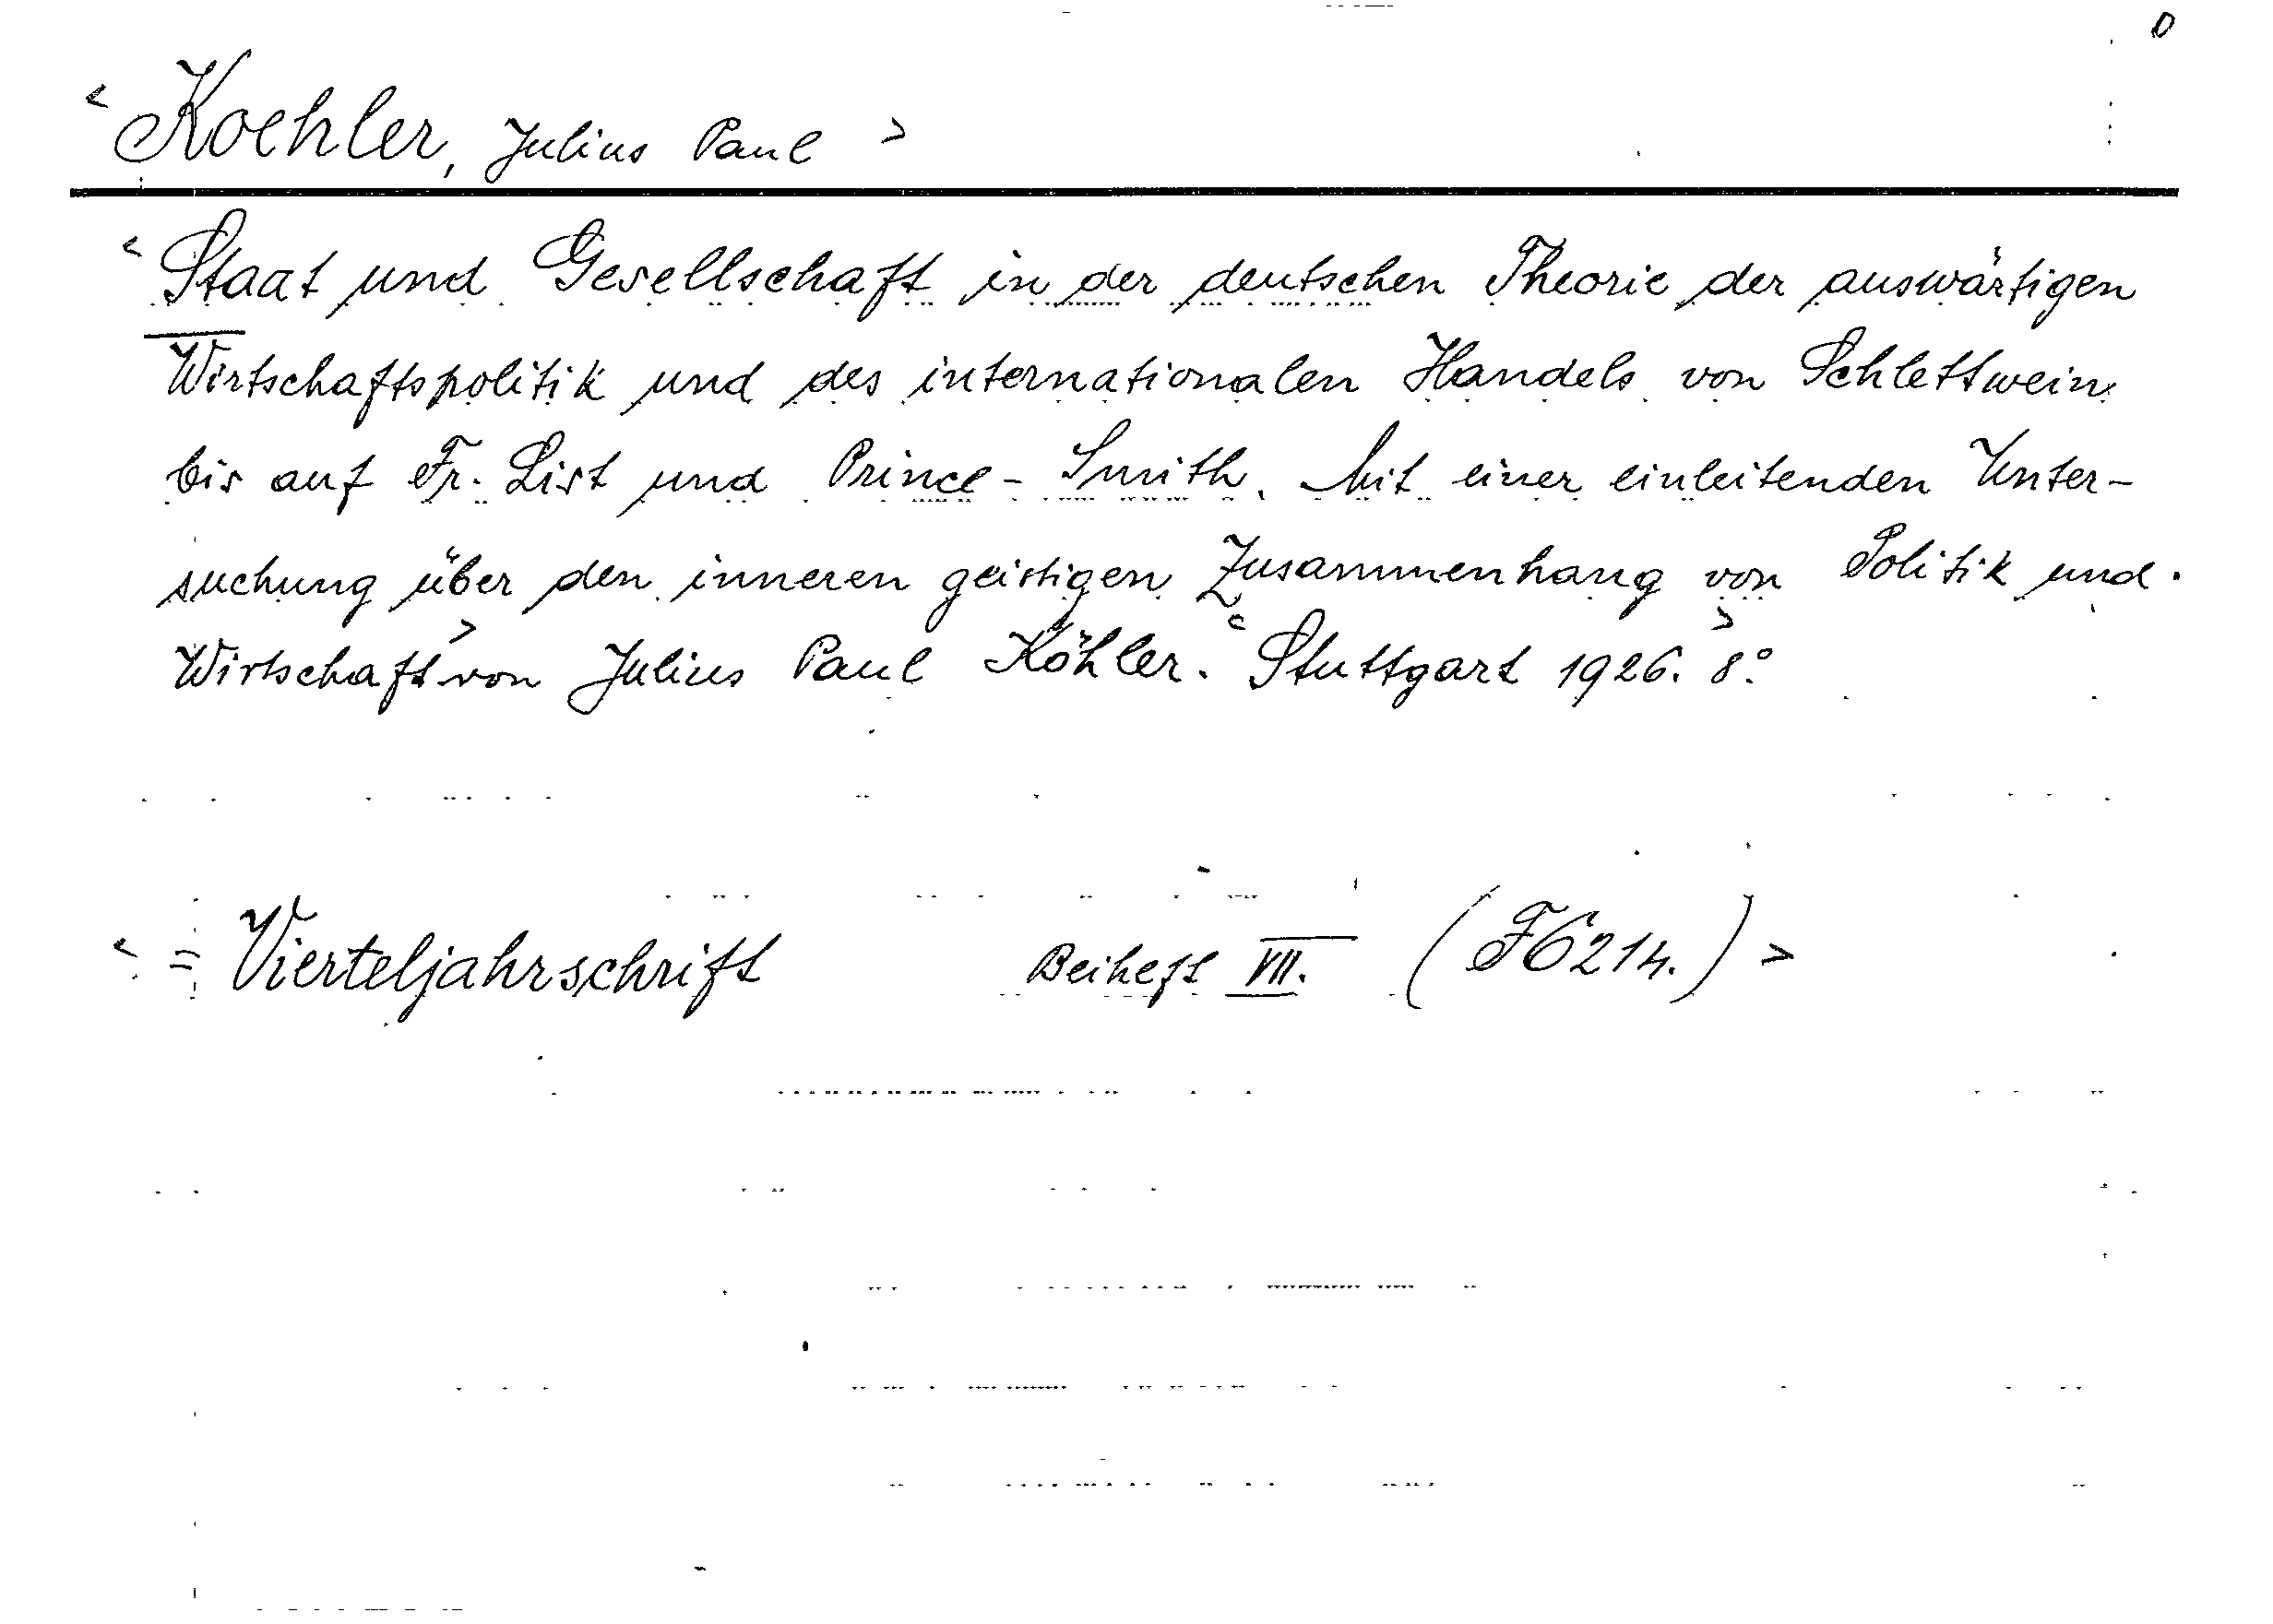 0
< Koehler, Julius Paul >
< Staat und Gesellschaft in der deutschen Theorie der auswärtigen
Wirtschaftspolitik und des internationalen Handels von Schlettwein
bis auf Fr. List und Prince-Smith. Mit einer einleitenden Unter-
suchung über den inneren geistigen Zusammenhang von Politik und
Wirtschaft > von Julius Paul Köhler. < Stuttgart 1926. > 8°.
< = Vierteljahrschrift Beiheft VII. (F6214.) >